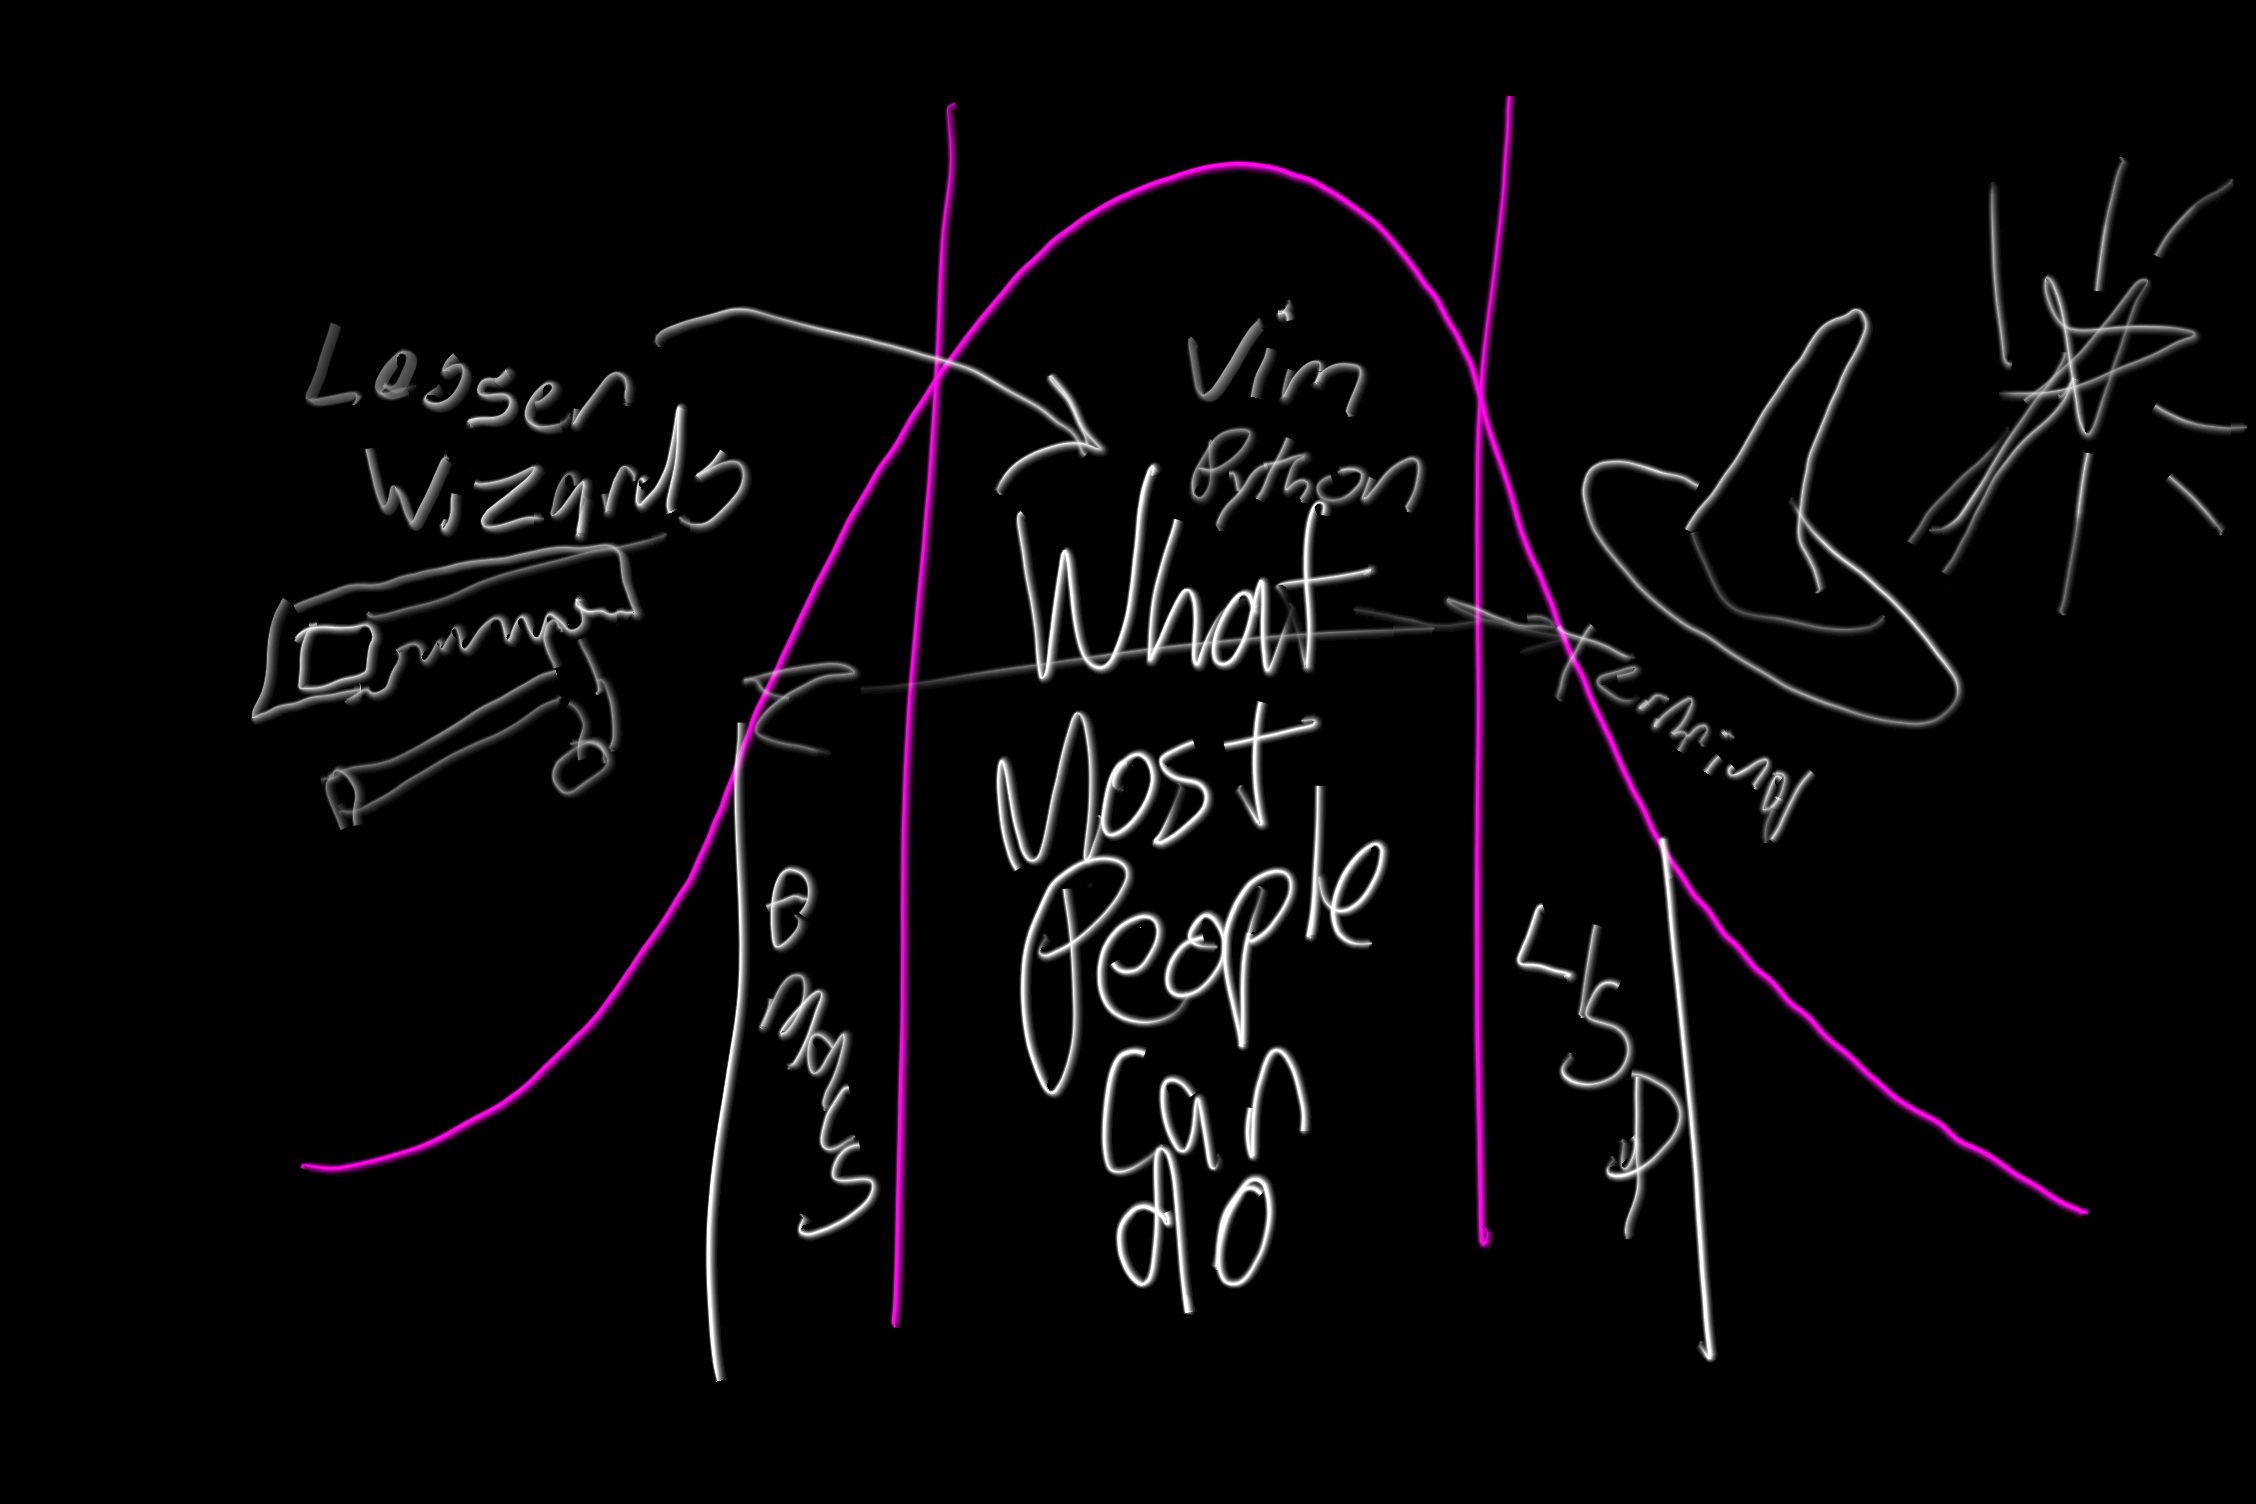 Lesser
Wizards
Vim
Python
What
Most
People
can
do
emacs
LISP